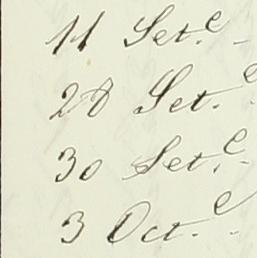 11 Set.e
28 Set.e
30 Set.e
3 Oct.e